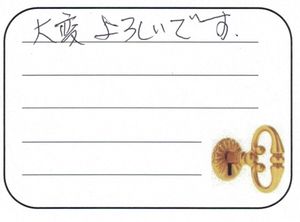 大変よろしいです.